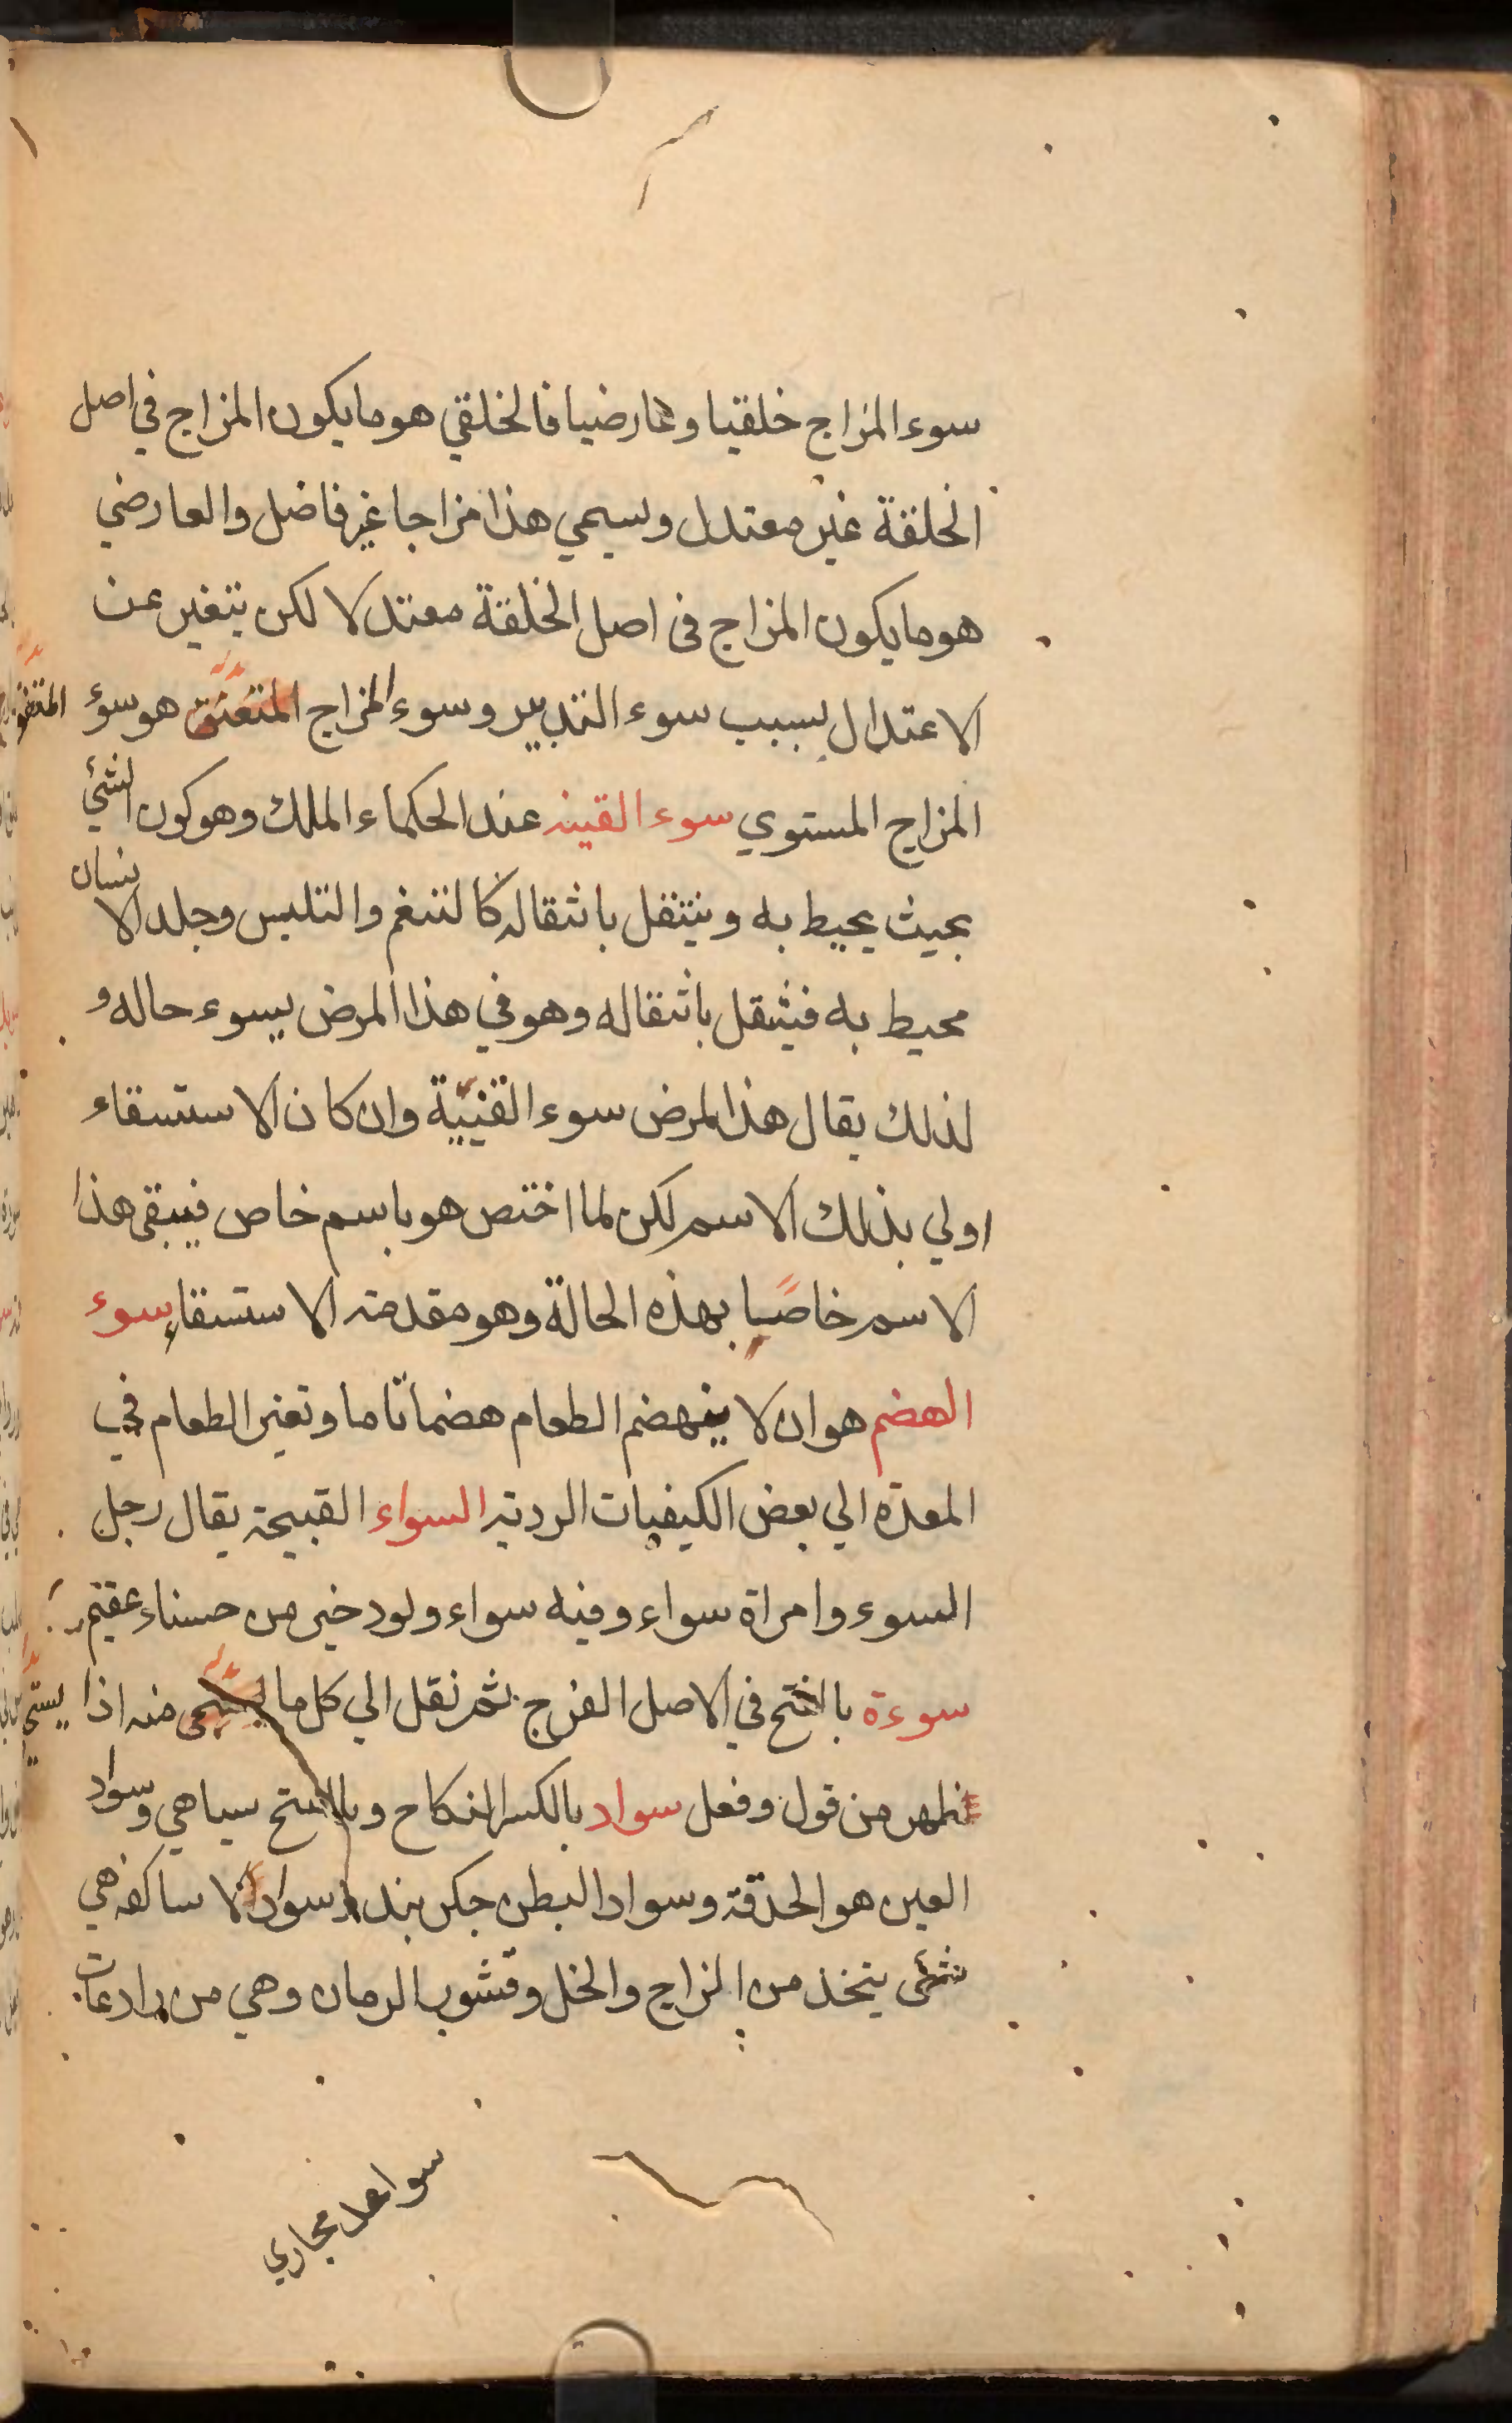 سوء المزاج خلقيا وعارضيا فالخلقي هو ما يكون المزاج في اصل
الخلقة غير معتدل ويسمي هذا مزاجا غير فاضل والعارضي
هو ما يكون المزاج في اصل الخلقة معتدلا لكن يتغير عن
الاعتدال بسبب سوء التدبير وسوء المزاج المتفق هو سوء
المزاج المستوي سوء القينه عند الحكماء الملك وهو كون الشئي
بحيث يحيط به وينتقل بانتقاله كالتنغم والتلبس وجلد الانسان
محيط به فينتقل بانتقاله وهو في هذا المرض يسوء حاله و
لذلك يقال هذا المرض سوء القنيية وان كان الاستسقاء
اولي بذلك الاسم لكن لما اختص هو باسم خاص فيبقي هذا
الاسم خاصيا بهذه الحالة وهو مقدمته الاستسقاء سوء
الهضم هو ان لا ينهضم الطعام هضما تاما وتغير الطعام في
المعدة الي بعض الكيفيات الرديه السواء القبيحة يقال رجل
السوء وامراة سواء وفيه سواء ولود خير من حسناء عقيم
سوءة بالفتح في الاصل الفرج ثم نقل الي كل ما يستحي منه اذا
ظهر من قول وفعل سواد بالكسر النكاح وبالفتح سياهي وسواد
العين هو الحدقة وسواد البطن جكر بند سواد الاساكفه هي
شئي يتخذ من الزاج والخل وقشور الرمان وهي من رادعات
سواعد مجاري